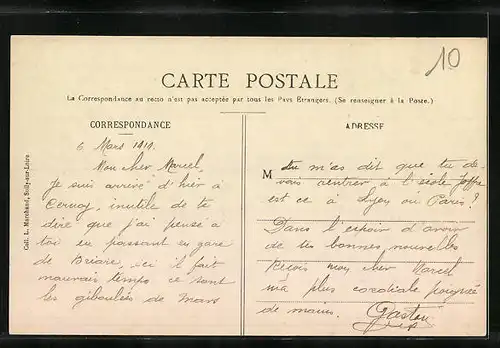 10
CARTE POSTALE
La Correspondance au recto n'est pas acceptée par tous les Pays Étrangers. (Se renseigner à la Poste.)
CORRESPONDANCE
6 Mars 1919.
Mon cher Marcel,
Je suis arrivé d'hier à
Cernoy, inutile de te
dire que j'ai pensé à
toi en passant en gare
de Briare, ici il fait
mauvais temps ce sont
les giboulées de Mars
ADRESSE
M Tu m'as dit que tu de-
vais rentrer à l'école Joffre
est ce à Lyon ou Paris?
Dans l'espoir d'avoir
de tes bonnes nouvelles
Reçois mon cher Marcel
ma plus cordiale poignée
de mains. Gaston
Coll. L. Marchand, Sully-sur-Loire